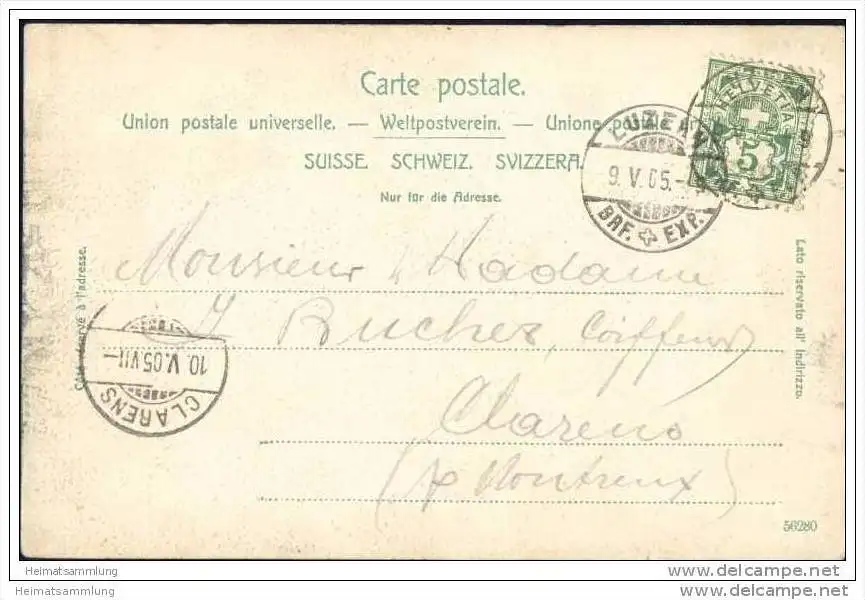 Carte postale.
Union postale universelle. — Weltpostverein. — Unione postale
SUISSE. SCHWEIZ. SVIZZERA.
Nur für die Adresse.
HELVETIA
5
LUZERN
9. V. 05.-
BRF. EXP.
Côté réservé à l'adresse.
Lato riservato all' indirizzo.
Monsieur & Madame
J Bucher, Coiffeur
Clarens
(p Montreux)
10. V. 05 VII-
CLARENS
56280
Heimatsammlung
Heimatsammlung
www.delcampe.net
www.delcampe.net